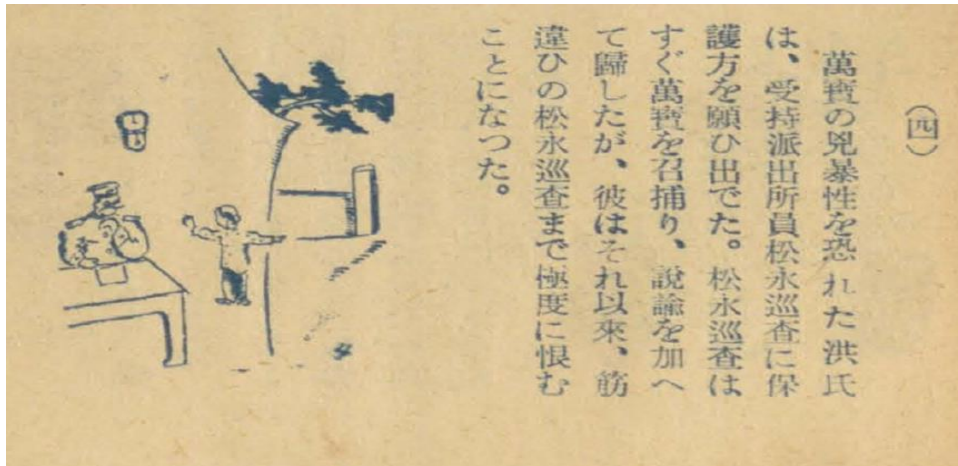 (四)
萬寶の兇暴性を恐れた洪氏
は、受持派出所員松永巡査に保
護方を願ひ出でた。松永巡査は
すぐ萬寶を召捕り、說諭を加へ
て歸したが、彼はそれ以來、筋
違ひの松永巡査まで極度に恨む
ことになつた。